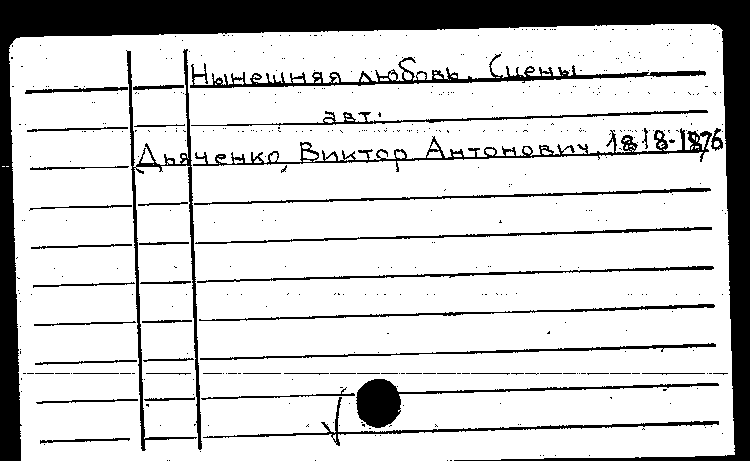 Нынешняя любовь. Сцены
авт:
Дьяченко, Виктор Антонович, 1818-1876